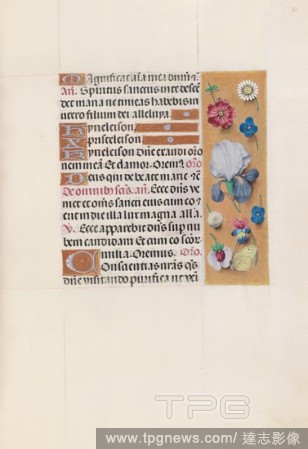 Magnificat a͞ia mea dn͞m ꝛ.
An͞. Spiritus sanctus in te descen
det maria ne timeas habebis in
utero filium dei alleluya.
Kyrieleison.
Xp͞eeleison.
Kyrieleison. Dn͞e exaudi oro͞
nem meam Et clamor. Oremus. Oro͞
Deus qui de beate marie ꝛ.
De omnibus sc͞is. an͞.
Ecce dn͞s ve
niet et om͞s sancti eius cum eo ꝛ
erit in die illa lux magna alla.
V. Ecce apparebit dn͞s sup nu
bem candidam Et cum eo sc͞or
milia. Oremus. Oro͞.
Conscientias nr͞as qs͞
dn͞e visitando purifica ut veni
TPG
www.tpgnews.com/ 達志影像